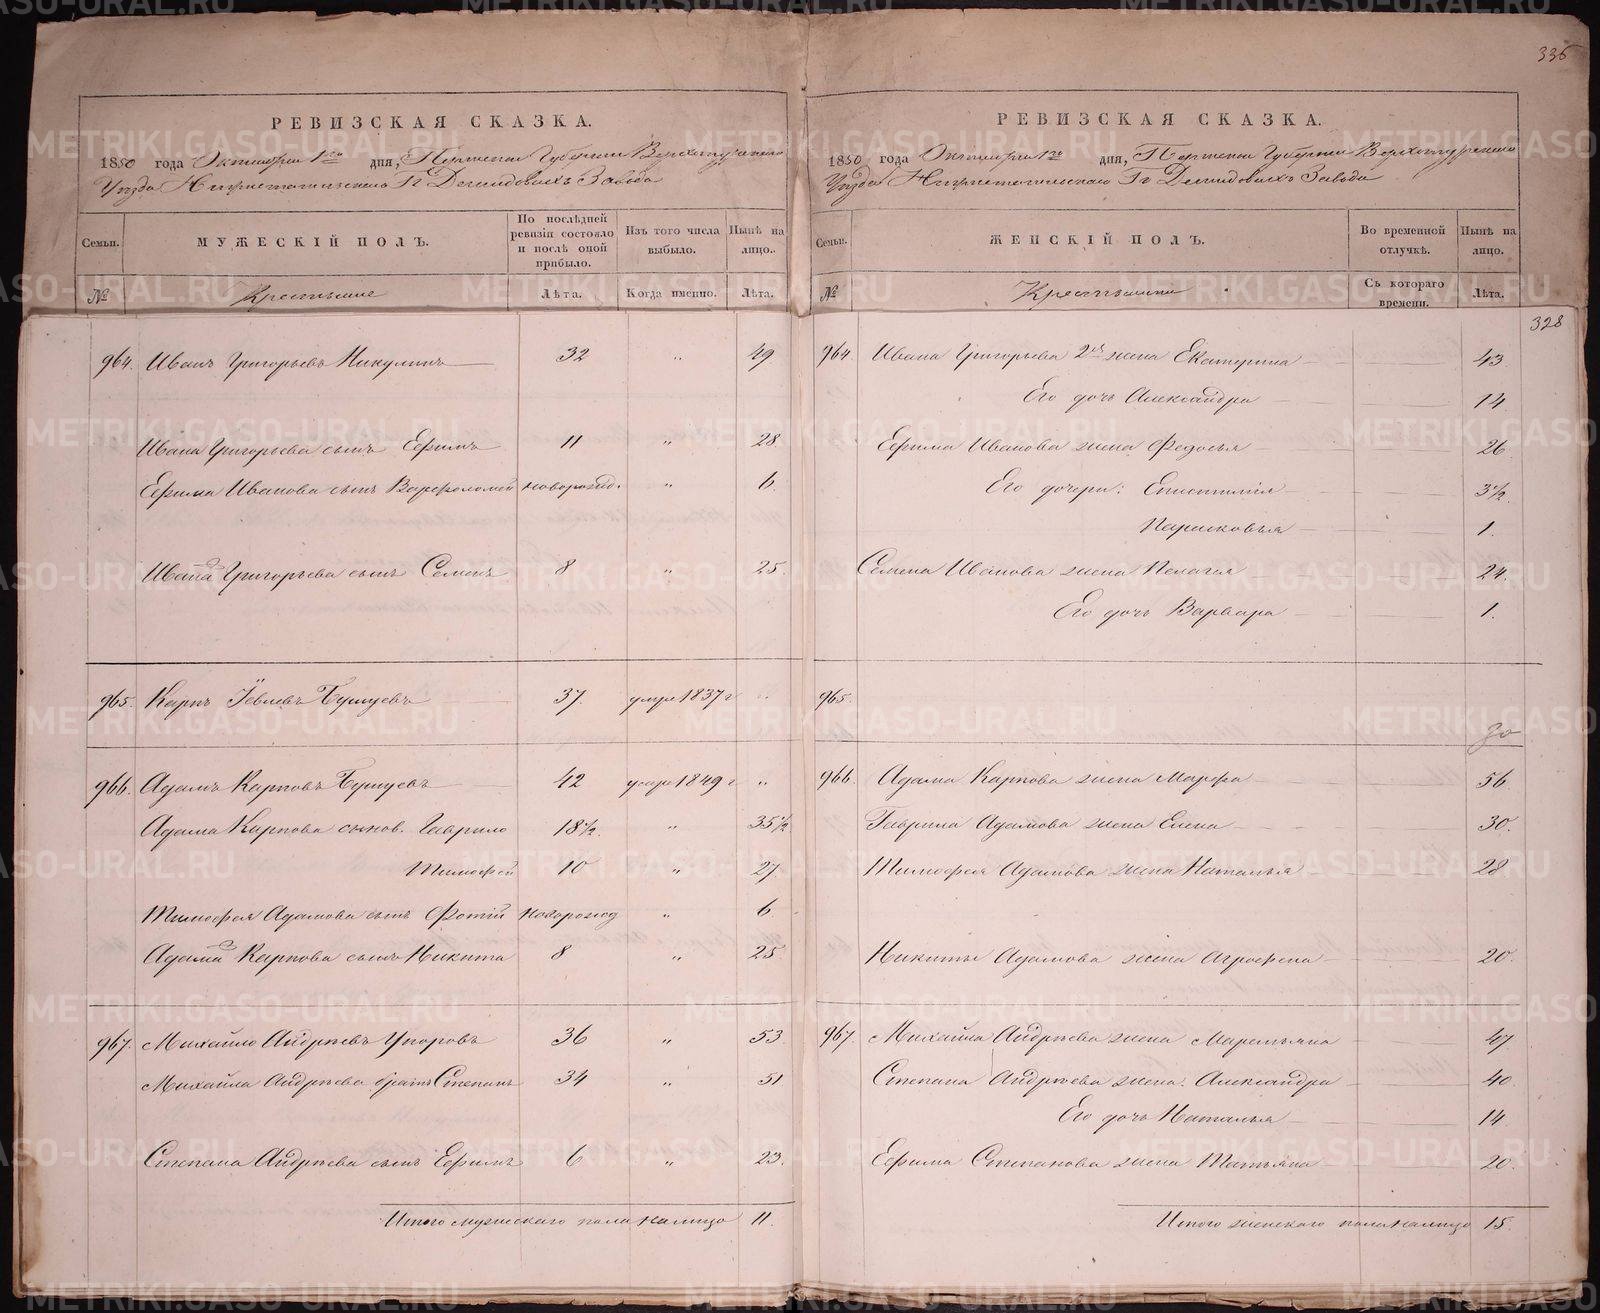 336
РЕВИЗСКАЯ СКАЗКА.
1850 года Октября 1го дня, Пермской Губернии Верхотурскаго
Уѣзда Нижнетагильскаго Гг Демидовыхъ Завода
Семьи.
МУЖЕСКІЙ ПОЛЪ.
По послѣдней ревизіи состояло и послѣ оной прибыло.
Изъ того числа выбыло.
Нынѣ на лицо.
№
Крестьяне
Лѣта.
Когда именно.
Лѣта.
964. Иванъ Григорьевъ Никулинъ 32 " 49
Ивана Григорьева сынъ Ефимъ 11 " 28
Ефима Иванова сынъ Варфоломей новорожд. " 6
Ивана Григорьева сынъ Семенъ 8 " 25
965. Карпъ Іевлевъ Бушуевъ 37 умре 1837 г "
966. Адамъ Карповъ Бушуевъ 42 умре 1849 г "
Адама Карпова сынов. Гаврило 18½ " 35½
Тимофей 10 " 27
Тимофея Адамова сынъ Фотій новорожд " 6
Адама Карпова сынъ Никита 8 " 25
967. Михайло Андреевъ Упоровъ 36 " 53
Михайла Андреева братъ Степанъ 34 " 51
Степана Андреева сынъ Ефимъ 6 " 23.
Итого мужескаго пола налицо 11.
РЕВИЗСКАЯ СКАЗКА.
1850 года Октября 1го дня, Пермской Губернии Верхотурскаго
Уѣзда Нижнетагильскаго Гг Демидовыхъ Завода
Семьи.
ЖЕНСКІЙ ПОЛЪ.
Во временной отлучкѣ.
Нынѣ на лицо.
№
Крестьянки
Съ котораго времени.
Лѣта.
328
964. Ивана Григорьева 2ая жена Екатерина 43
Его дочь Александра 14
Ефима Иванова жена Федосья 26
Его дочери: Епистимія 3½
Парасковья 1.
Семена Иванова жена Пелагея 24.
Его дочь Варвара 1.
965.
966. Адама Карпова жена Марфа 56
Гаврила Адамова жена Елена 30.
Тимофея Адамова жена Наталья 28
Никиты Адамова жена Агрофена 20.
967. Михайла Андреева жена Маремьяна 47
Степана Андреева жена Александра 40
Его дочь Наталья 14
Ефима Степанова жена Татьяна 20.
Итого женскаго пола налицо 15.
METRIKI.GASO-URAL.RU